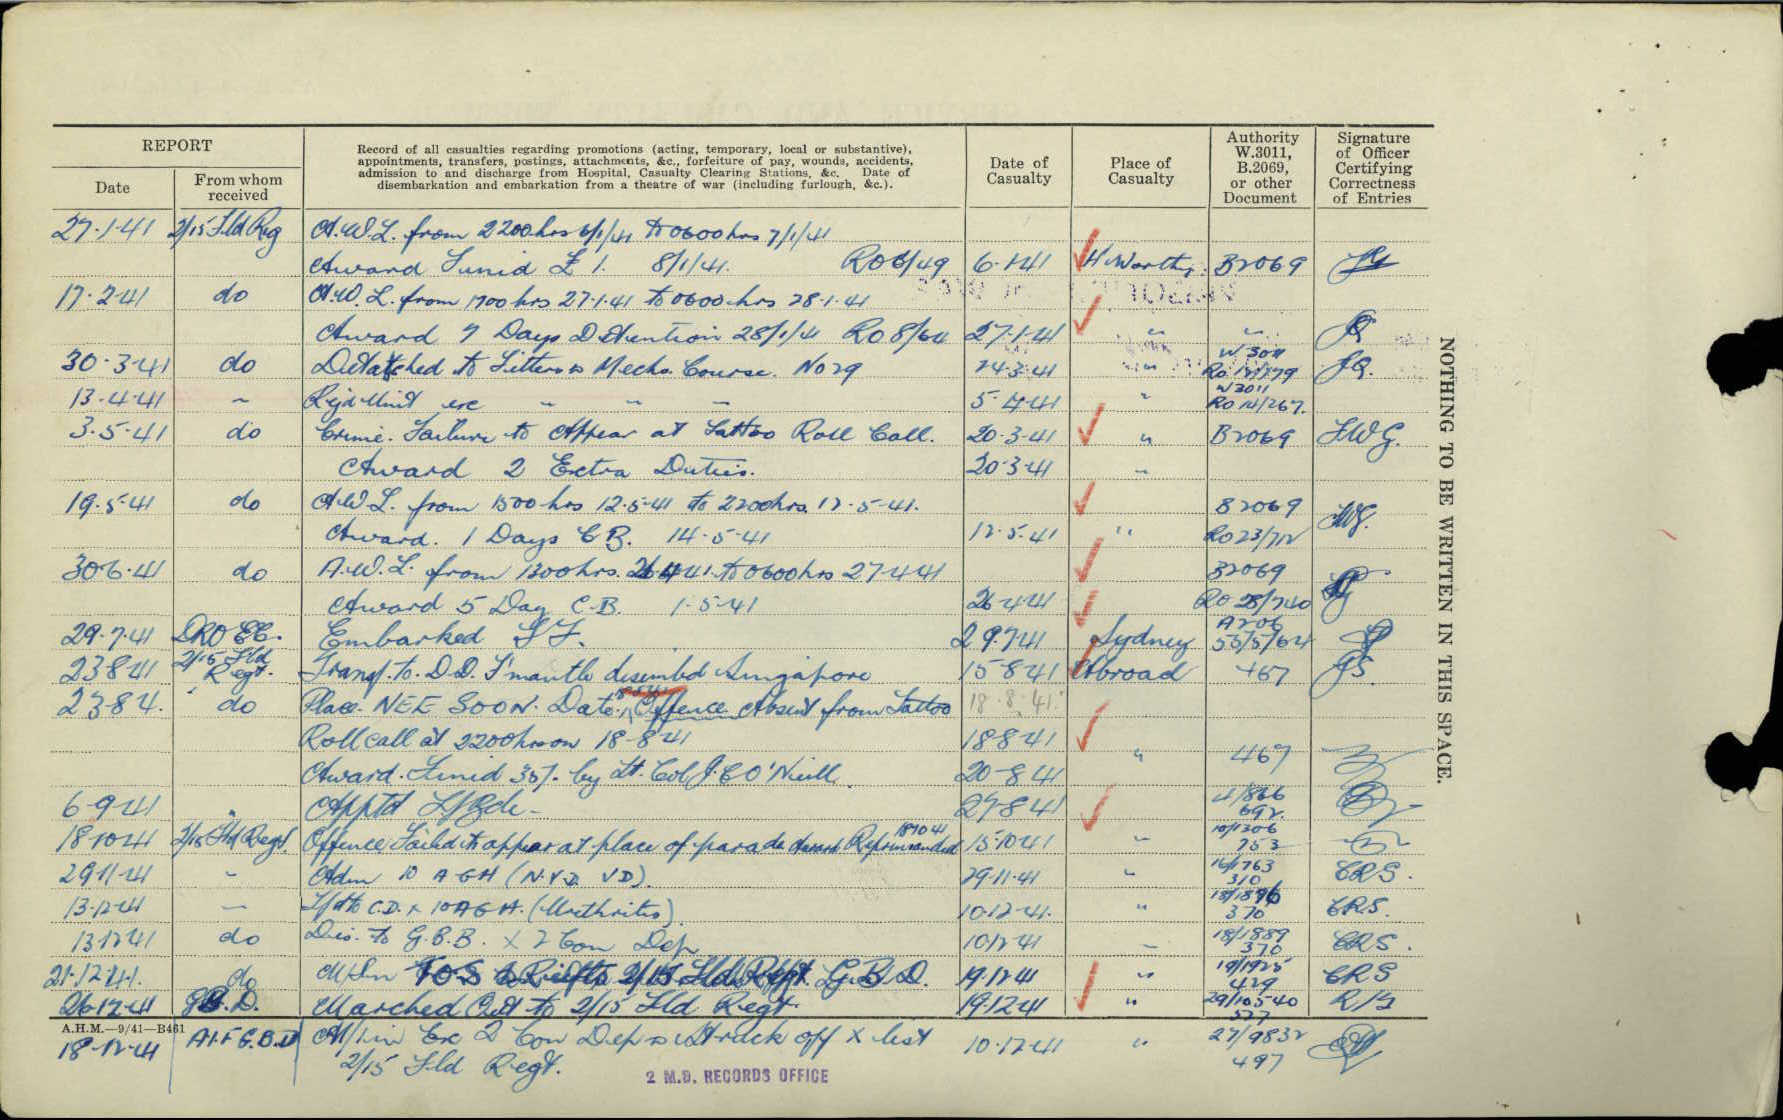 REPORT
Date
From whom received
Record of all casualties regarding promotions (acting, temporary, local or substantive), appointments, transfers, postings, attachments, &c., forfeiture of pay, wounds, accidents, admission to and discharge from Hospital, Casualty Clearing Stations, &c. Date of disembarkation and embarkation from a theatre of war (including furlough, &c.).
Date of Casualty
Place of Casualty
Authority W.3011, B.2069, or other Document
Signature of Officer Certifying Correctness of Entries
27.1.41 2/15 Fld Reg A.W.L. from 2200hrs 6/1/41 to 0600hrs 7/1/41
Award Fined £ 1. 8/1/41. RO 6/49 6.1.41 H'Worthy. B2069
17.2.41 do A.W.L. from 1700hrs 27.1.41 to 0600hrs 28.1.41
Award 7 Days Detention 28/1/41 RO 8/64 27.1.41 " "
30.3.41 do Detatched to Fitters Mechs. Course. No 29 24.3.41 " W3011 Ro 12/179 JQ.
13.4.41 " Rejd Unit exc " " " 5.4.41 " W3011 RO 14/267.
3.5.41 do Crime. Failure to Appear at Tattoo Roll Call. 20.3.41 " B2069 FWG.
Award 2 Extra Duties. 20.3.41 "
19.5.41 do A.W.L. from 1500hrs 12.5.41 to 2200hrs. 12.5.41. B2069
Award. 1 Days C B. 14.5.41 12.5.41 " RO23/712 FWG.
30.6.41 do A.W.L. from 1300hrs. 26.4.41. to 0600hrs 27.4.41 B2069
Award 5 Day C.B. 1.5.41 26.4.41 RO 28/740
29.7.41 DRO EC. Embarked S.F. 29.7.41 Sydney A206 55/5/64
23.8.41 2/15 Fld Regt. Transf. to D.D. F'mantle disembd Singapore 15.8.41 Abroad 467 JS.
23.8.4. do Place. NEE SOON. Date Offence Absent from Tattoo 18.8.41.
Roll call at 2200hrs on 18.8.41 18.8.41 " 467
Award. Fined 30/. by Lt. Col J. E O'Neill. 20.8.41
6.9.41 " Apptd L/Bdr 27.8.41 41/866 692.
18.10.41 2/15 Fld Regt. Offence Failed to appear at place of parade Reprimanded 18 10 41 15.10.41 " 10/1306 753
29.11.41 " Adm 10 A G H (N.Y.D. VD). 29.11.41 " 16/1763 310 CRS.
13.12.41 " C.D. x 10 A G H. (Urethritis) 10.12.41. " 18/1896 370 CRS.
13.12.41 do Dis. to G.B.B. x 2 Con Dep 10.12.41 " 18/1889 370 CRS.
21.12.41. do 2/15 Fld Regt. G.B.D. 19.12.41 " 19/1925 429 CRS
26.12.41 G.B.D. Marched Out to 2/15 Fld Regt. 19.12.41 " 29/10540 527
A.H.M.—9/41—B461
18.12.41 AIF G.B.D M/in Ex 2 Con Dep & Struck off x list 10.12.41 " 27/9832
2/15 Fld Regt. 497
2 M.D. RECORDS OFFICE
NOTHING TO BE WRITTEN IN THIS SPACE.